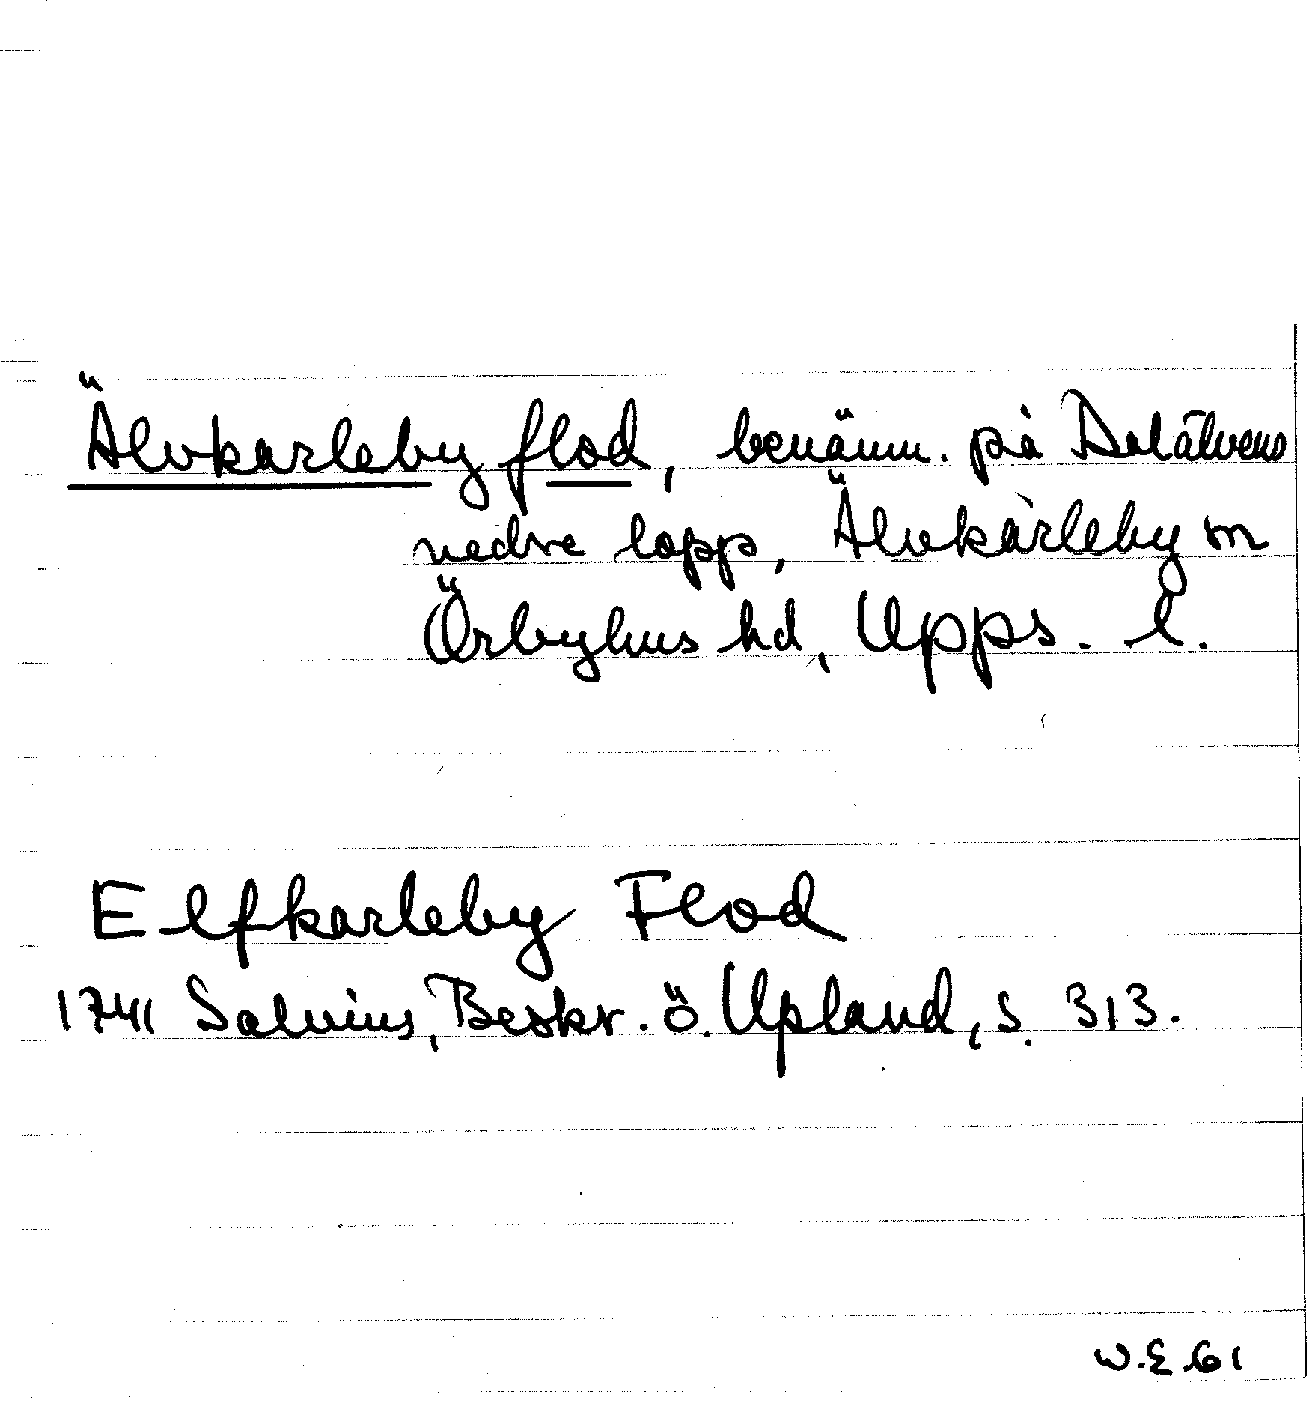 Älvkarleby flod, benämn. på Dalälvens
nedre lopp, Älvkarleby sn
Örbyhus hd, Upps. l.
Elfkarleby Flod
1741 Salvius, Beskr. ö. Upland, s. 313.
W.E 61